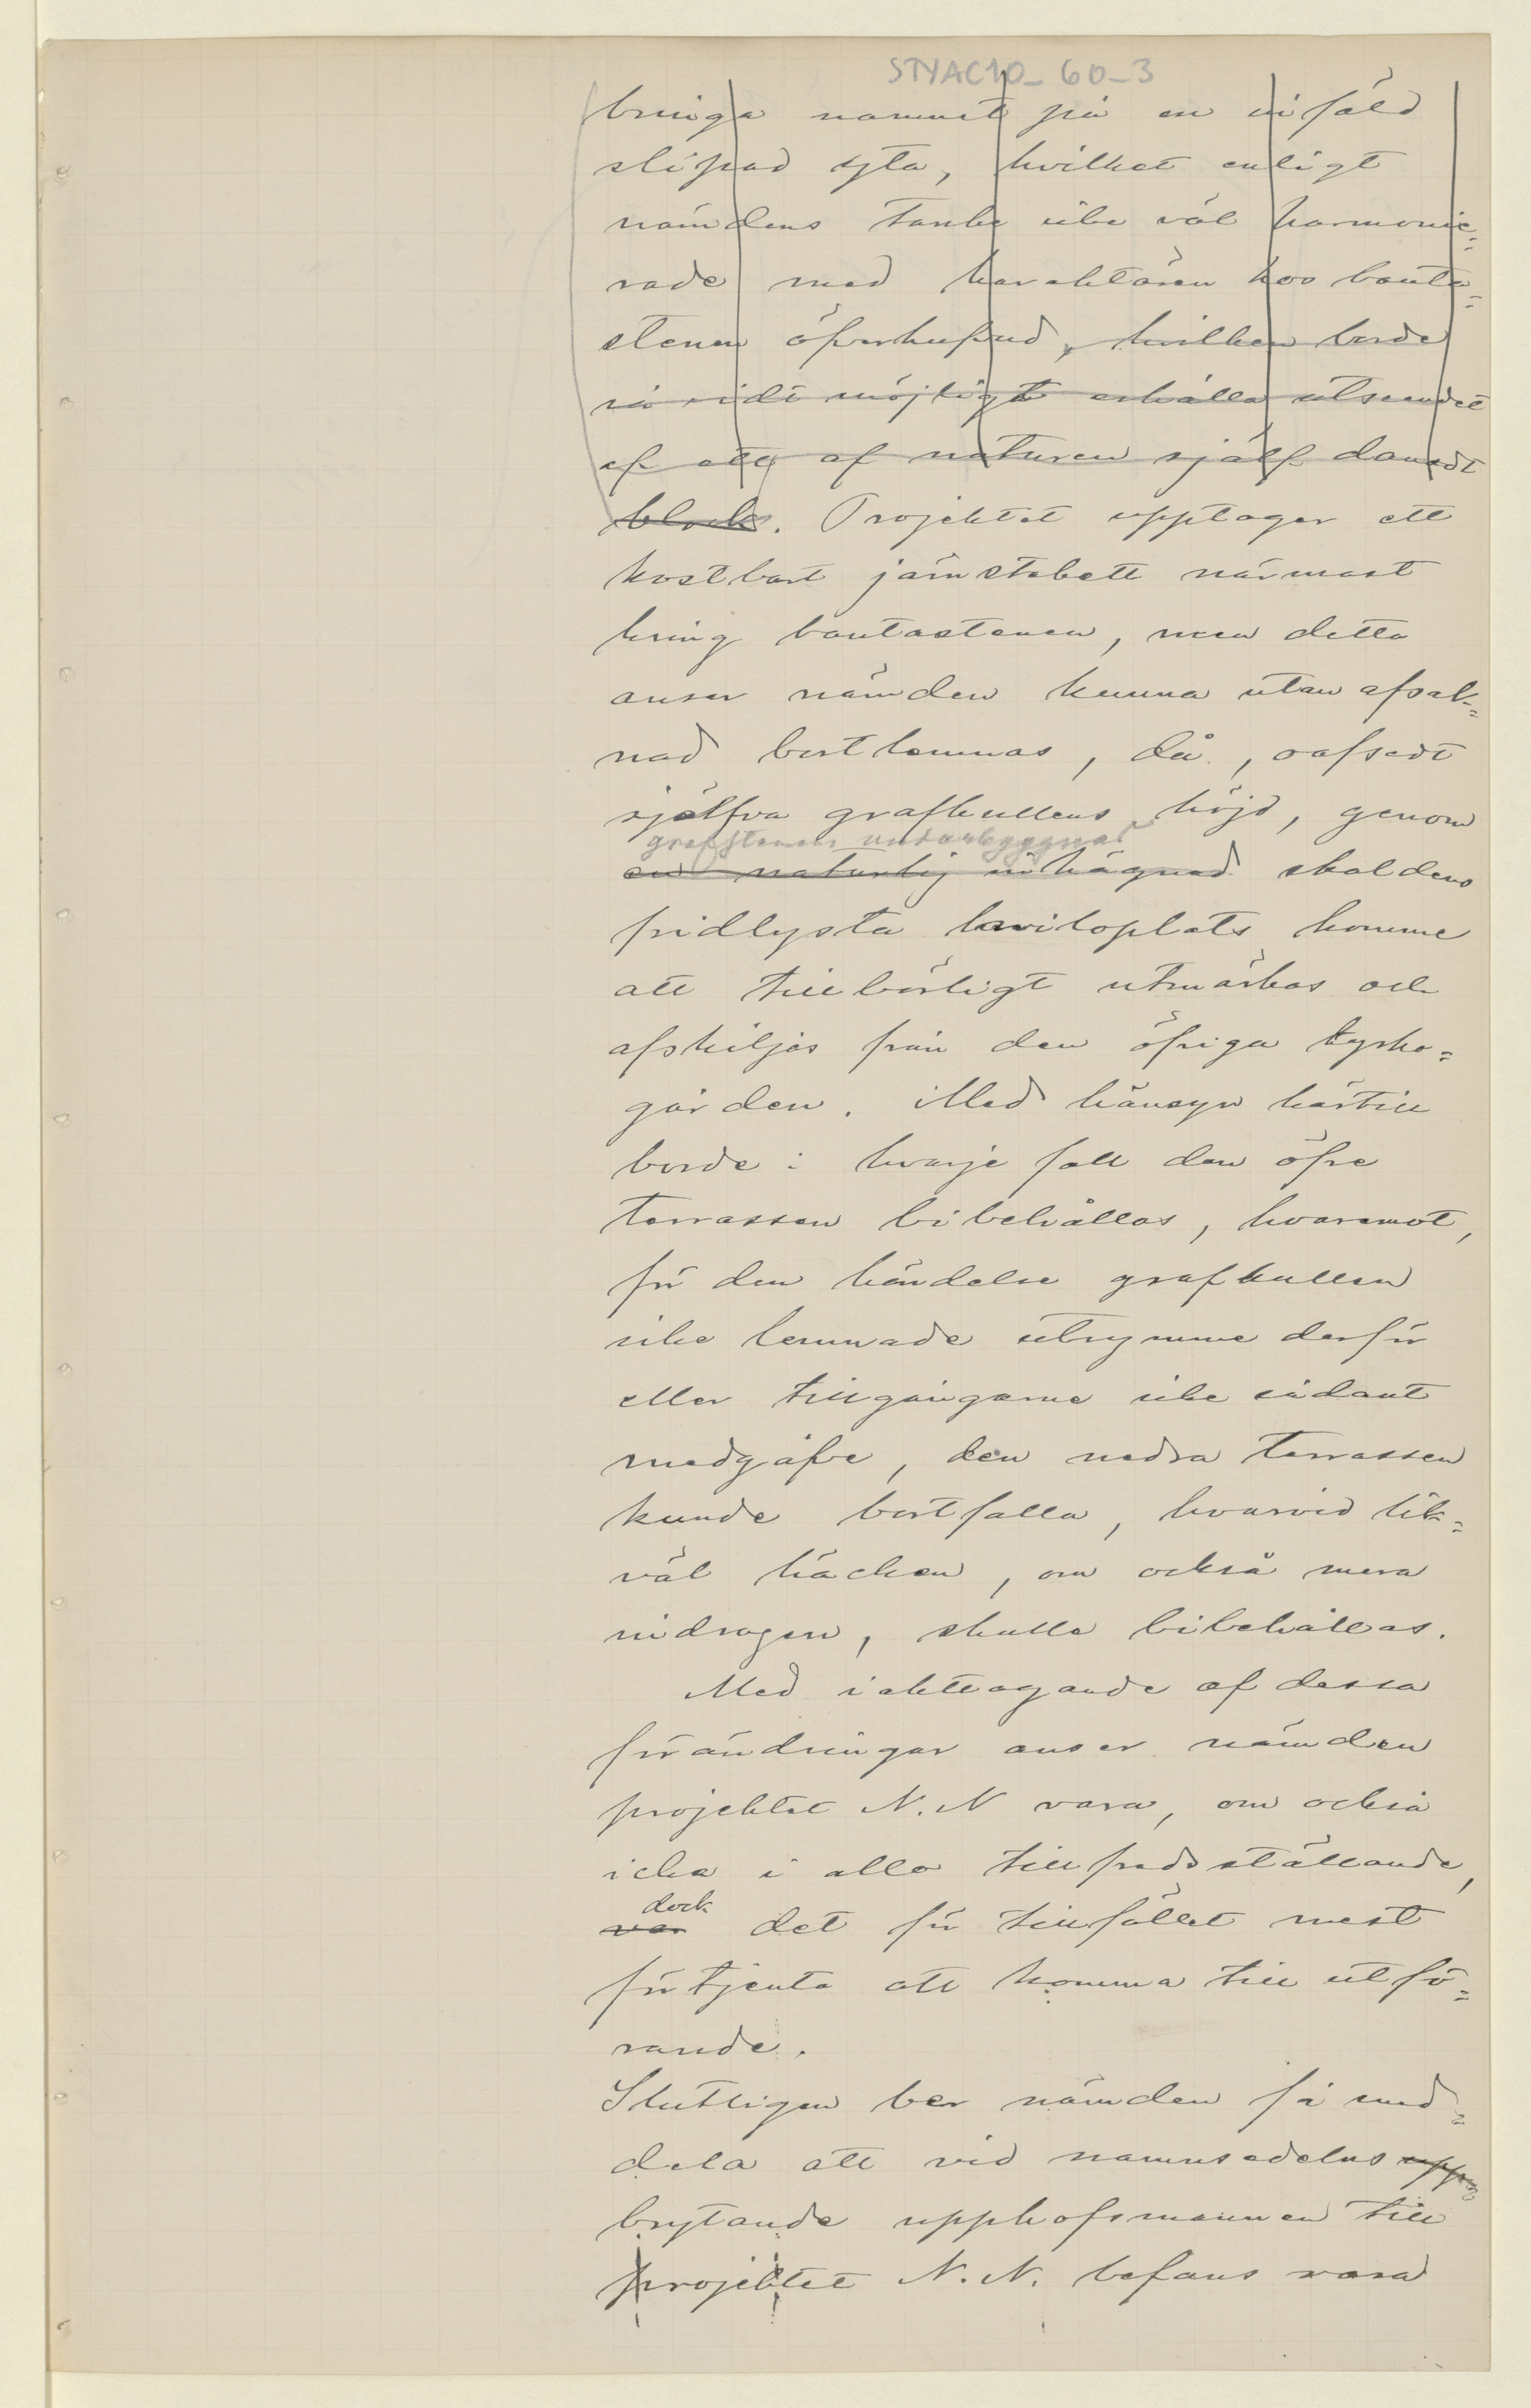 STYAC10_60_3
bringa namnet på en infäld
slipad yta, hvilket enligt
nämdens tanke icke väl harmonie=
rade med karaktären hos bauta=
stenen öfverhufvud, hvilken borde
så vidt möjligt erhålla utseendet
af ett af naturen själf danadt
block. Projektet upptager ett
kostbart järnstakett närmast
kring bautastenen, men detta
anser nämden kunna utan afsak=
nad bortlemnas, då, oafsedt
själfva grafkullens höjd, genom
grafstenens underbyggnad
en naturlig inhägnad skaldens
fridlysta hviloplats komme
att tillbörligt utmärkas och
afskiljas från den öfriga kyrko=
gården. Med hänsyn härtill
borde i hvarje fall den öfre
terrassen bibehållas, hvaremot,
för den händelse grafkullen
icke lemnade utrymme derför
eller tillgångarne icke sådant
medgåfve, den nedra terrassen
kunde bortfalla, hvarvid lik=
väl häcken, om också mera
indragen, skulle bibehållas.
Med iakttagande af dessa
förändringar anser nämden
projektet N.N vara, om också
icke i allo tillfredsställande,
dock
var det för tillfället mest
förtjenta att komma till utfö=
rande.
Slutligen ber nämden få med=
dela att vid namnsedelns upp=
brytande upphofsmannen till
projektet N.N. befans vara